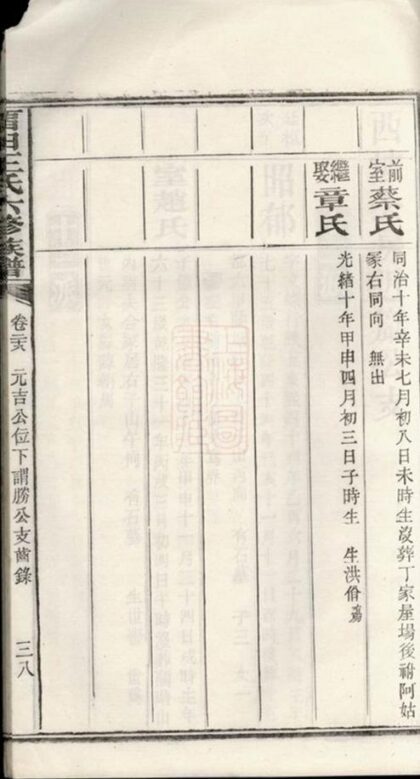 前室蔡氏
同治十年辛未七月初八日未時生沒葬丁家屋場後祔阿姑
冢右同向 無出
繼娶章氏
光緒十年甲申四月初三日子時生 生洪
王氏六修族譜
元吉公位下謂勝公支齒錄
三八